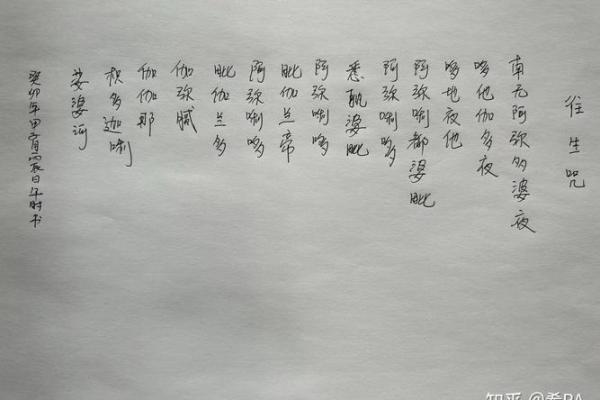 往生咒
南无阿弥多婆夜
哆他伽多夜
哆地夜他
阿弥唎都婆毗
阿弥唎哆
悉耽婆毗
阿弥唎哆
毗伽兰帝
阿弥唎哆
毗伽兰多
伽弥腻
伽伽那
枳多迦唎
娑婆诃
癸卯年甲子月丙辰日午时书
知乎 @希PA